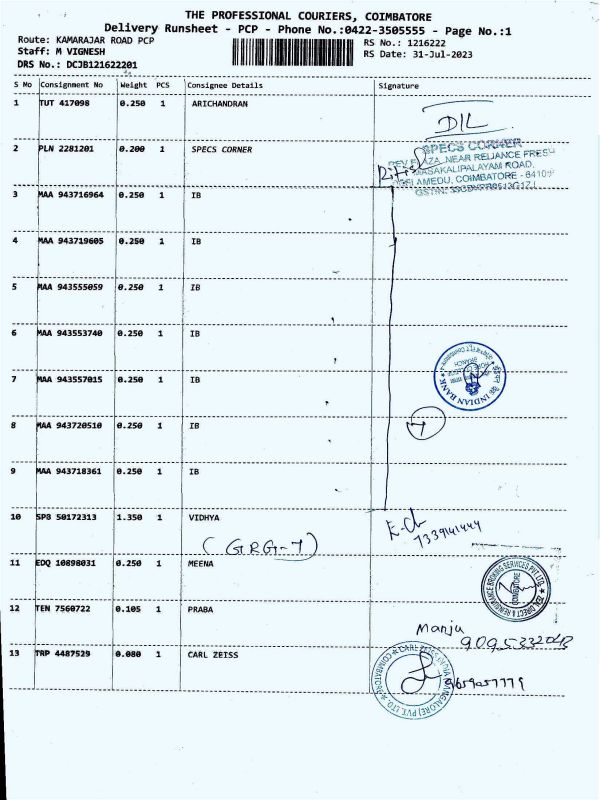 THE PROFESSIONAL COURIERS, COIMBATORE
Delivery Runsheet - PCP - Phone No.:0422-3505555 - Page No.:1
Route: KAMARAJAR ROAD PCP
RS No.: 1216222
Staff: M VIGNESH
RS Date: 31-Jul-2023
DRS No.: DCJB121622201
S No Consignment No Weight PCS Consignee Details Signature
1 TUT 417098 0.250 1 ARICHANDRAN
DIL
2 PLN 2281201 0.200 1 SPECS CORNER
SPECS CORNER
PLAZA, NEAR RELIANCE FRESH
MASAKALIPALAYAM ROAD,
COIMBATORE - 6410
3 MAA 943716964 0.250 1 IB
4 MAA 943719605 0.250 1 IB
5 MAA 943555059 0.250 1 IB
6 MAA 943553740 0.250 1 IB
7 MAA 943557015 0.250 1 IB
INDIAN BANK
8 MAA 943720510 0.250 1 IB
7
9 MAA 943718361 0.250 1 IB
10 SPB 50172313 1.350 1 VIDHYA
7339141444
(GRG-7)
11 EDQ 10898031 0.250 1 MEENA
DIRECT & REINSURANCE BROKING SERVICES PVT LTD.
COIMBATORE
12 TEN 7560722 0.105 1 PRABA
Manju
13 TRP 4487529 0.080 1 CARL ZEISS
CARL ZEISS INDIA (BANGALORE) PVT. LTD.
COIMBATORE